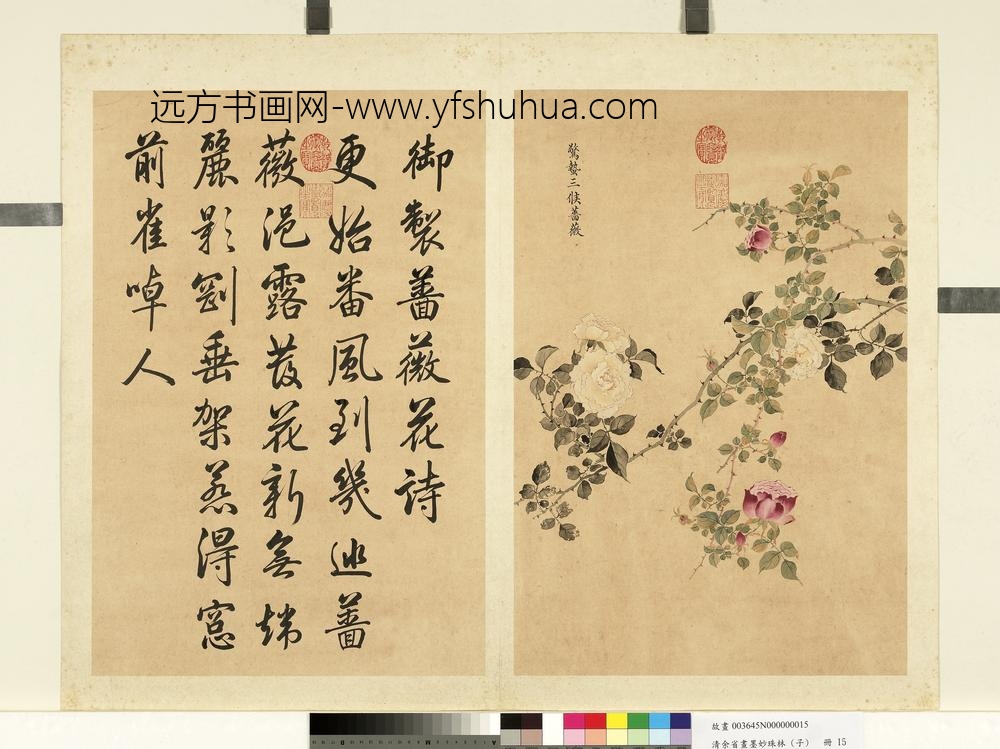 远方书画网-www.yfshuhua.com
驚蟄三候薔薇
御製薔薇花詩
更始番風到幾巡薔
薇浥露發花新無端
麗影垂架惹得窓
前雀啅人
故畫 003645N000000015
清余省畫墨妙珠林（子） 冊 15